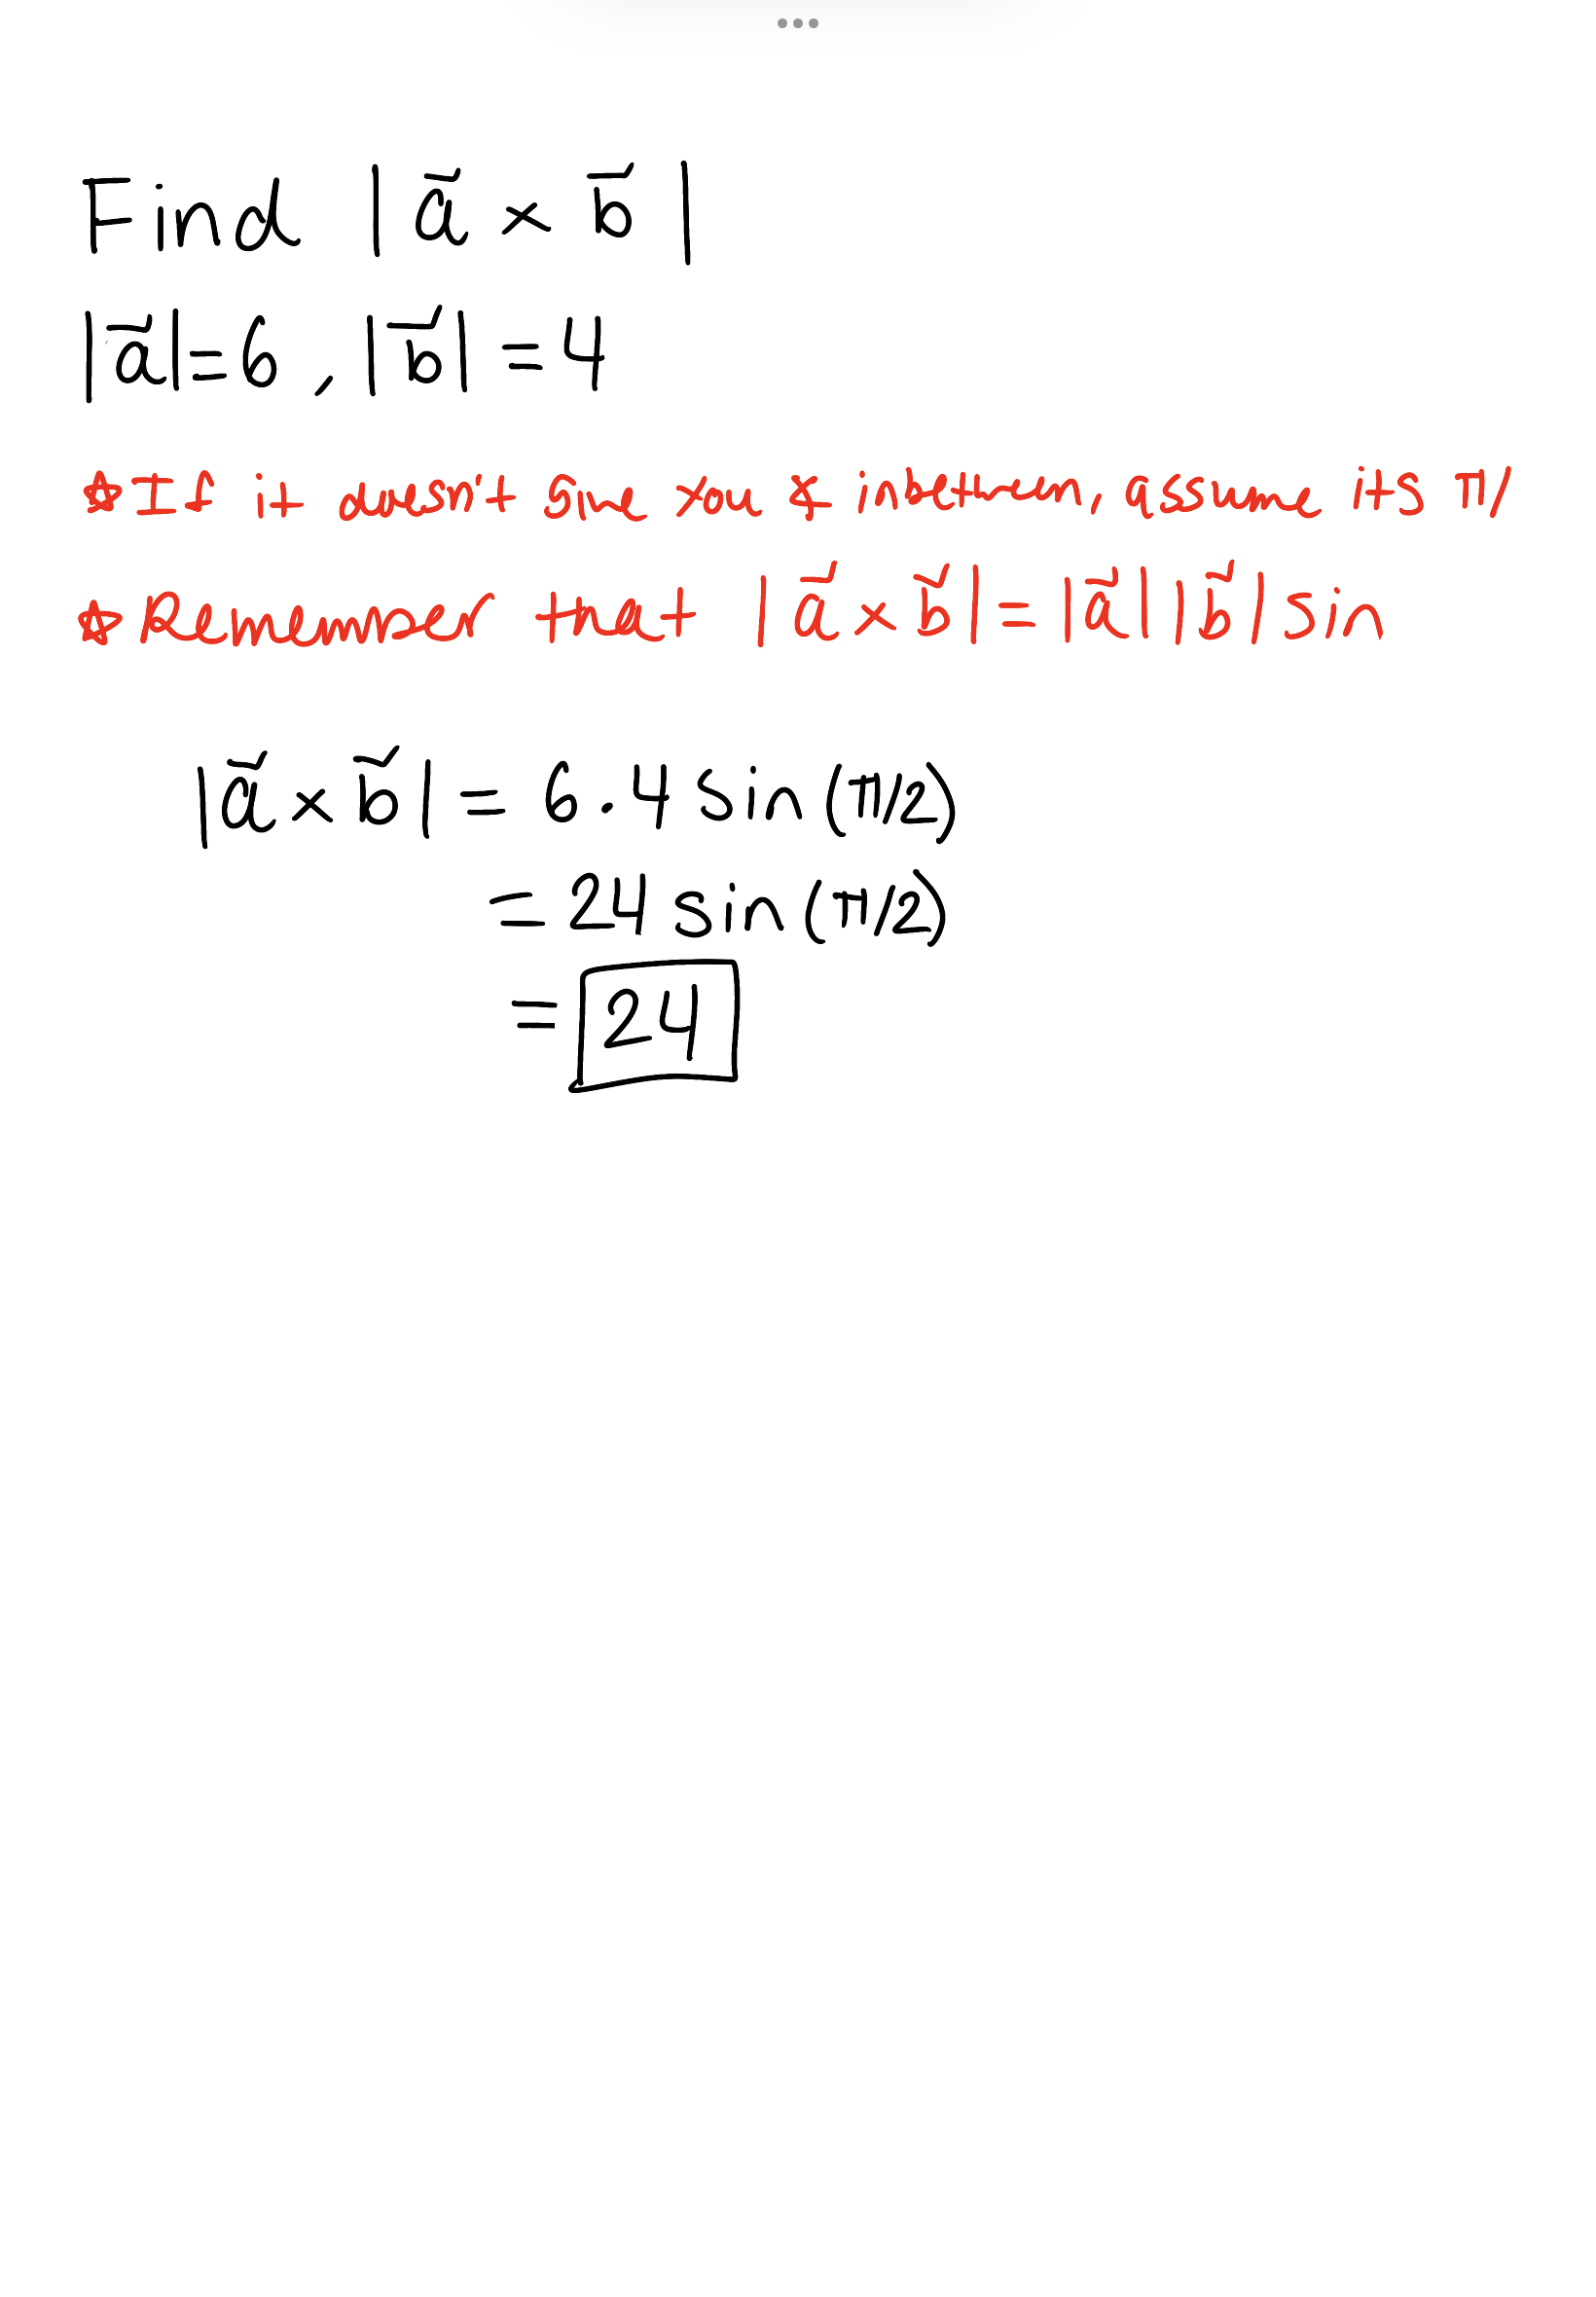 Find |a⃗ × b⃗|
|a⃗|=6, |b⃗|=4
☆If it doesn't give you ∡ inbetween, assume its π/
☆Remember that |a⃗ × b⃗|=|a⃗||b⃗|sin
|a⃗ × b⃗| = 6·4 sin(π/2)
= 24 sin(π/2)
= 24